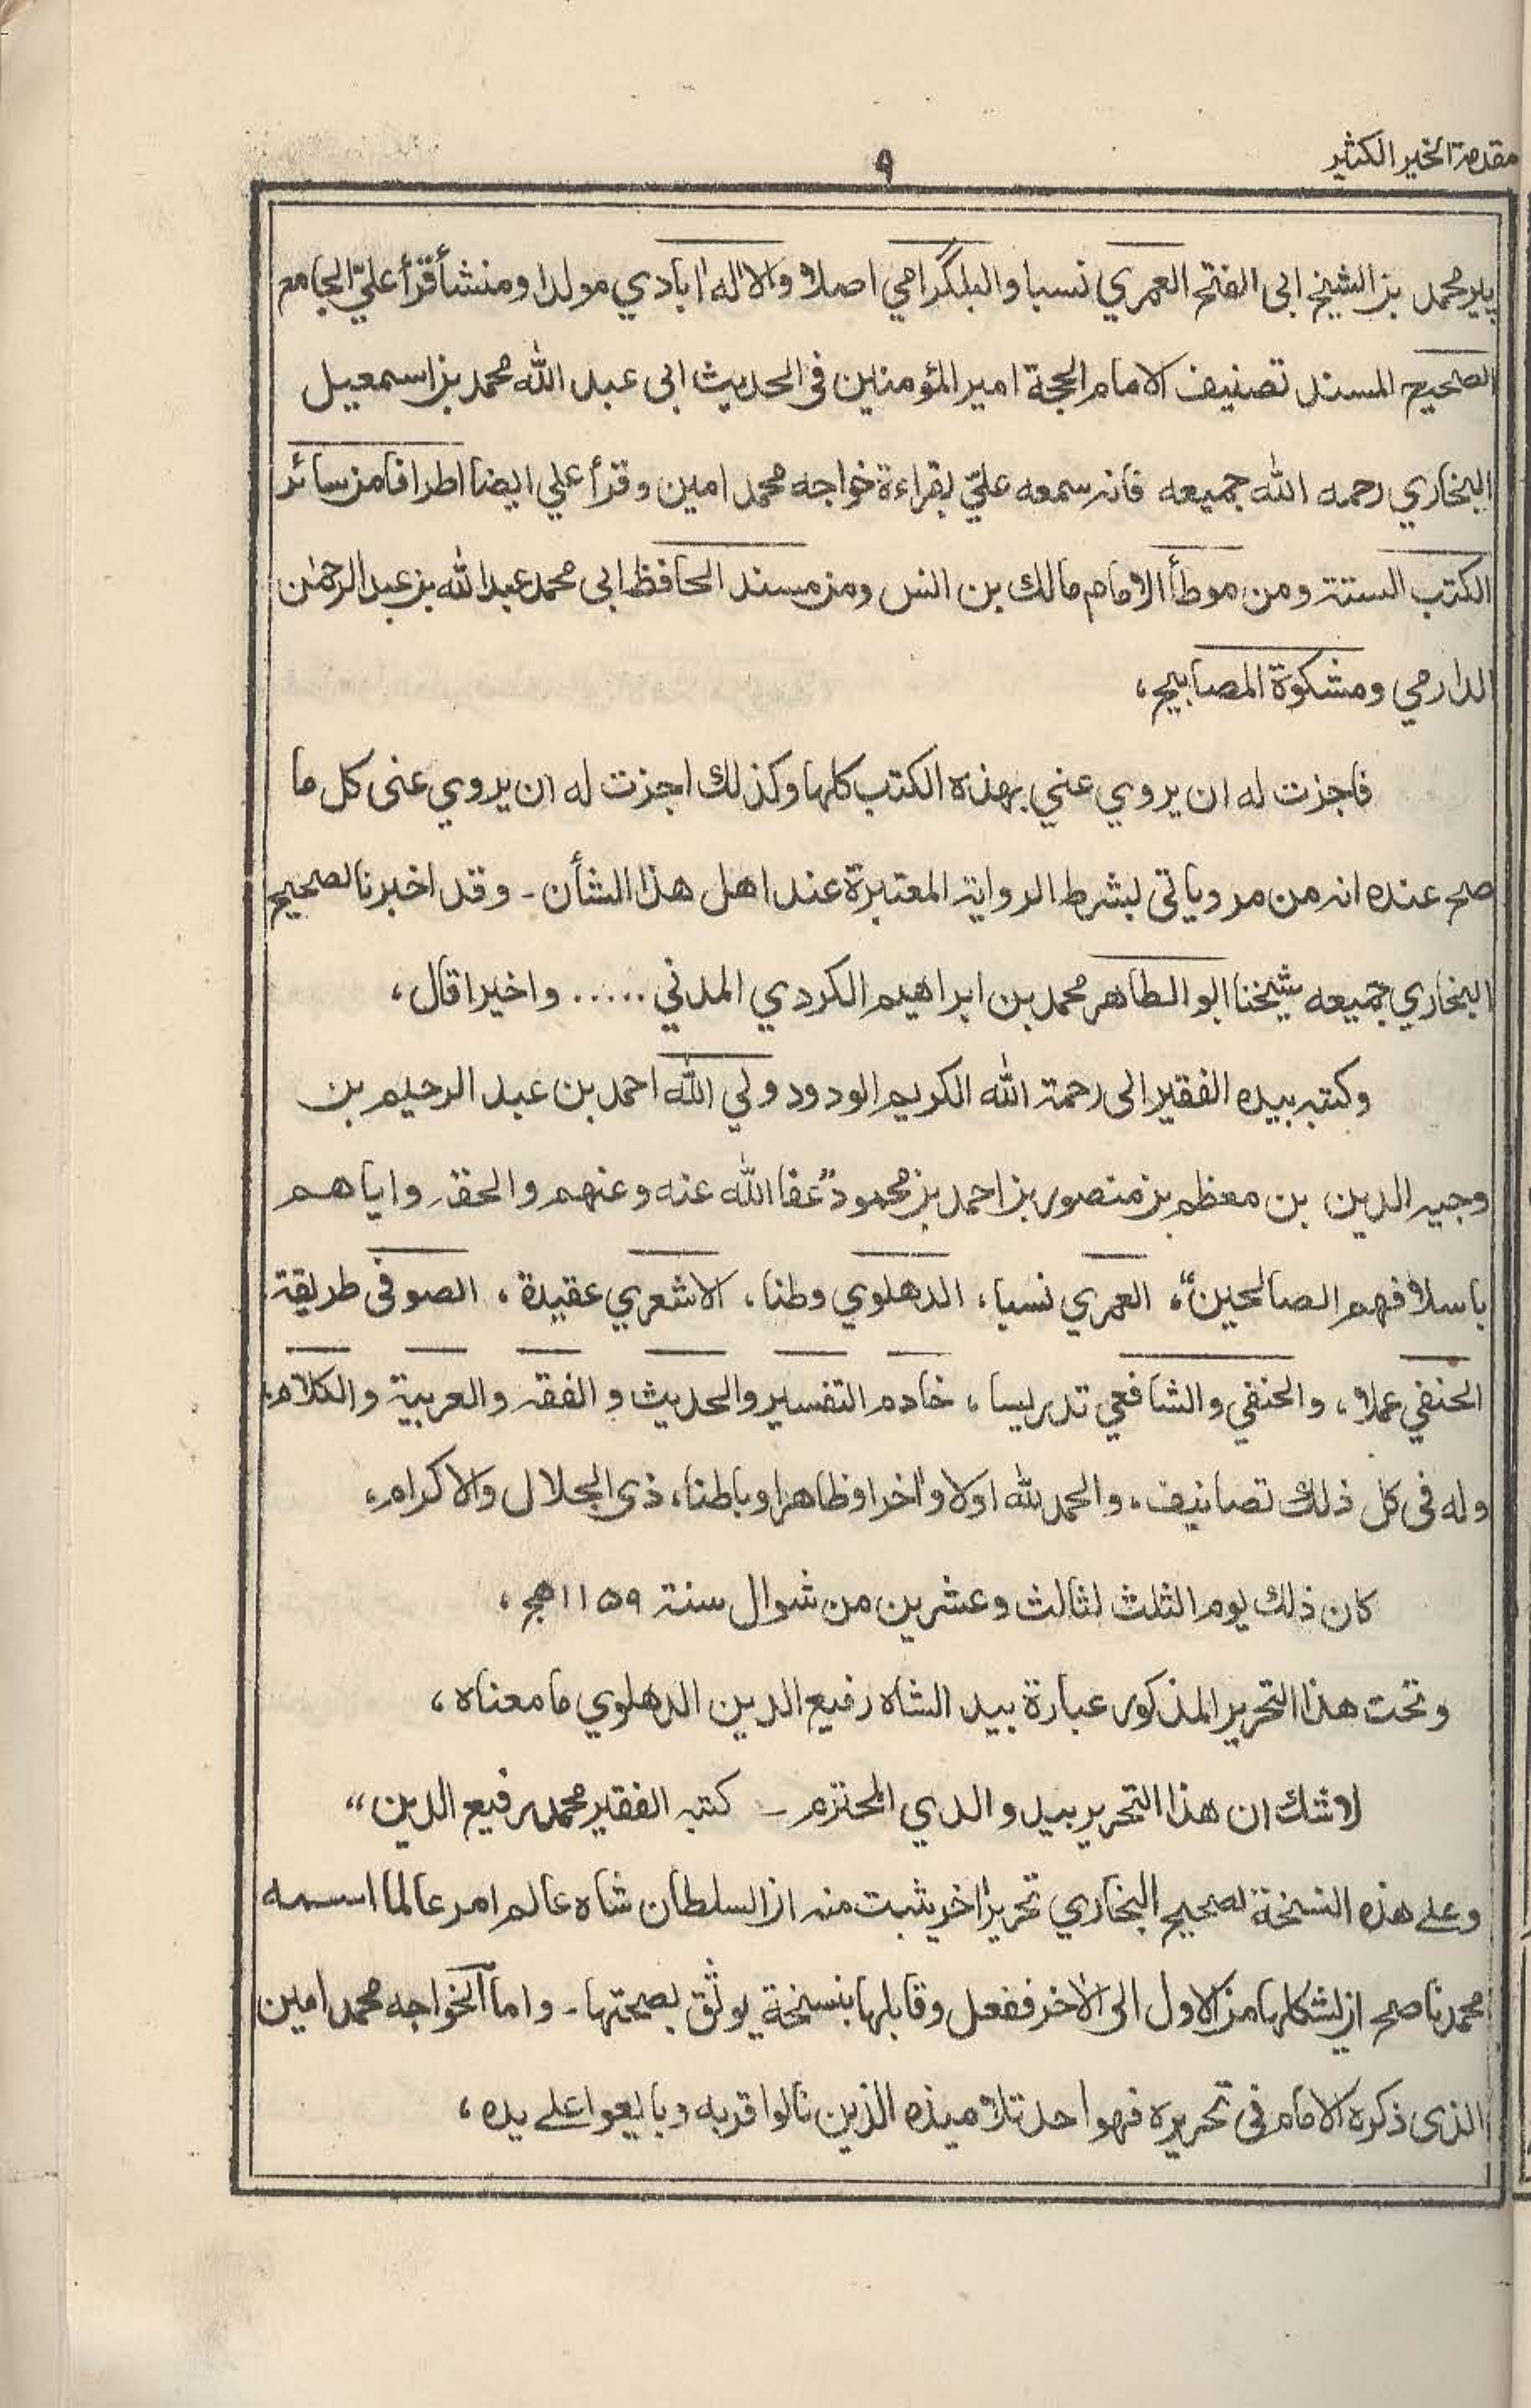 مقدمة الخير الكثير
٩
پير محمد بن الشيخ ابى الفتح العمري نسبا والبلگرامي اصلا والاله ابادي مولدا ومنشأ قرأ عليّ الجامع
الصحيح المسند تصنيف الامام الحجة امير المؤمنين فى الحديث ابى عبد الله محمد بن اسمعيل
البخاري رحمه الله جميعه فانه سمعه عليّ بقراءة خواجه محمد امين وقرأ علي ايضا اطرافا من سائر
الكتب الستة ومن موطأ الامام مالك بن انس ومن مسند الحافظ ابى محمد عبد الله بن عبد الرحمٰن
الدارمي ومشكوة المصابيح،
فاجزت له ان يروي عني بهذه الكتب كلها وكذلك اجزت له ان يروي عنى كل ما
صح عنده انه من مروياتى بشرط الرواية المعتبرة عند اهل هذا الشأن - وقد اخبرنا لصحيح
البخاري جميعه شيخنا ابو الطاهر محمد بن ابراهيم الكردي المدني ..... واخيرا قال،
وكتبه بيده الفقير الى رحمة الله الكريم الودود ولي الله احمد بن عبد الرحيم بن
وجيه الدين بن معظم بن منصور بن احمد بن محمود "عفا الله عنه وعنهم والحقه واياهم
باسلافهم الصالحين"، العمري نسبا، الدهلوي وطنا، الاشعري عقيدة، الصوفى طريقة،
الحنفي عملا، والحنفي والشافعي تدريسا، خادم التفسير والحديث و الفقه والعربية والكلام،
وله فى كل ذلك تصانيف، والحمد لله اولا واٰخرا وظاهرا وباطنا، ذى الجلال والاكرام،
كان ذلك يوم الثلث لثالث وعشرين من شوال سنة ۱۱۵۹ هج،
وتحت هذا التحرير المذكور عبارة بيد الشاه رفيع الدين الدهلوي ما معناه،
لا شك ان هذا التحرير بيد والدي المحترم - كتبه الفقير محمد رفيع الدين"
وعلے هذه النسخة لصحيح البخاري تحرير اٰخر يثبت منه ان السلطان شاه عالم امر عالما اسمه
محمد ناصح ان يشكلها من الاول الى الاٰخر ففعل وقابلها بنسخة يوثق بصحتها - واما الخواجه محمد امين
الذى ذكره الامام فى تحريره فهو احد تلاميذه الذين نالوا قربه وبايعوا علے يده،